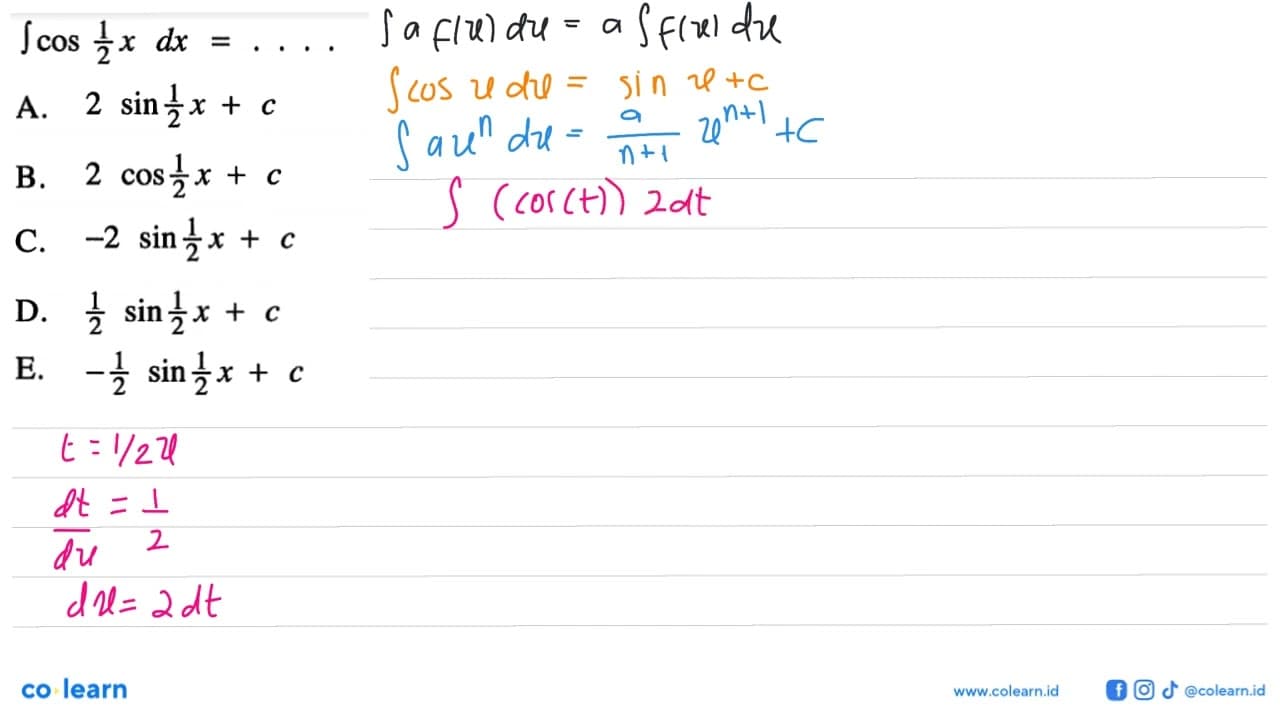 ∫ cos 1/2 x dx = . . . .
A. 2 sin 1/2 x + c
B. 2 cos 1/2 x + c
C. −2 sin 1/2 x + c
D. 1/2 sin 1/2 x + c
E. −1/2 sin 1/2 x + c
∫ a f(x) dx = a ∫ f(x) dx
∫ cos x dx = sin x + c
∫ ax^n dx = a/(n+1) x^(n+1) + C
∫ (cos(t)) 2dt
t = 1/2 x
dt/dx = 1/2
dx = 2 dt
co learn
www.colearn.id
@colearn.id